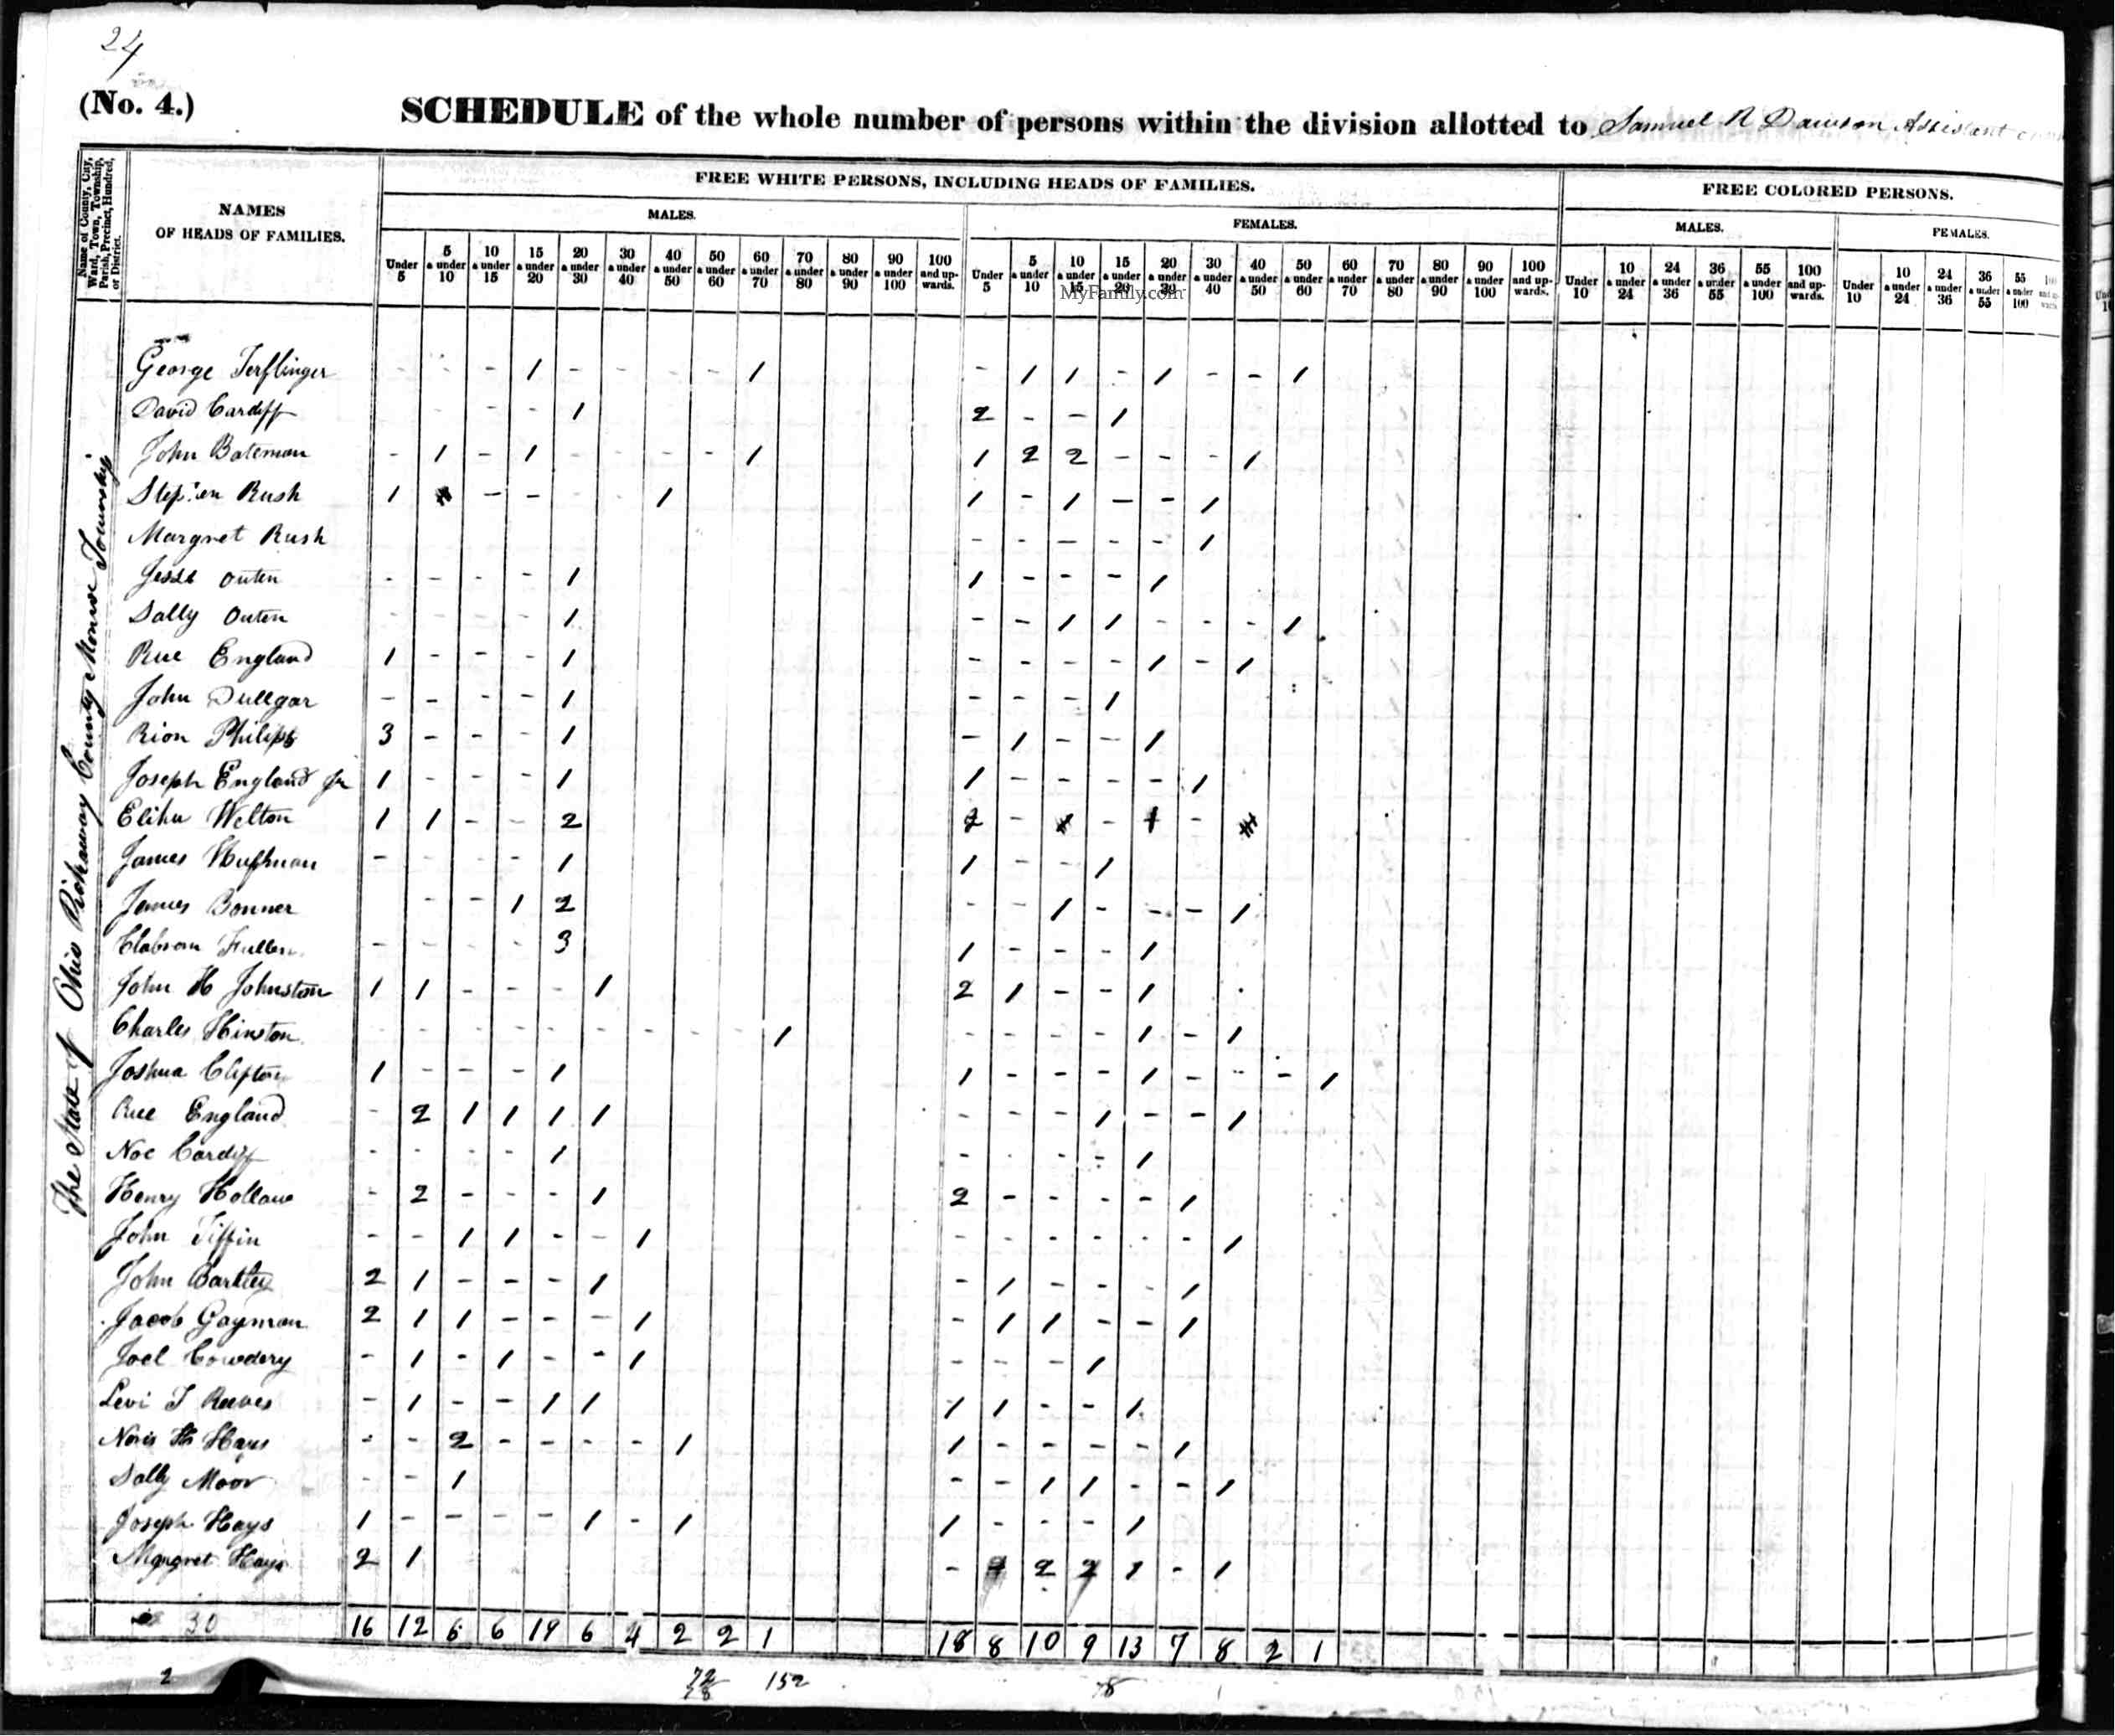 24
(No. 4.) SCHEDULE of the whole number of persons within the division allotted to Samuel R Dawson Assistant
Name of County, City, Ward, Town, Township, Parish, Precinct, Hundred, or District.
NAMES OF HEADS OF FAMILIES.
FREE WHITE PERSONS, INCLUDING HEADS OF FAMILIES.
FREE COLORED PERSONS.
MALES. FEMALES. MALES. FEMALES.
Under 5 | 5 & under 10 | 10 & under 15 | 15 & under 20 | 20 & under 30 | 30 & under 40 | 40 & under 50 | 50 & under 60 | 60 & under 70 | 70 & under 80 | 80 & under 90 | 90 & under 100 | 100 and upwards. | Under 5 | 5 & under 10 | 10 & under 15 | 15 & under 20 | 20 & under 30 | 30 & under 40 | 40 & under 50 | 50 & under 60 | 60 & under 70 | 70 & under 80 | 80 & under 90 | 90 & under 100 | 100 and upwards. | Under 10 | 10 & under 24 | 24 & under 36 | 36 & under 55 | 55 & under 100 | 100 and upwards. | Under 10 | 10 & under 24 | 24 & under 36 | 36 & under 55 | 55 & under 100 | 100
MyFamily.com
The State of Ohio Pickaway County Monroe Township
George Terflinger - - - 1 - - - - 1 - 1 1 - 1 - - 1
David Cardiff - - - - 1 2 - - 1
John Bateman - 1 - 1 - - - - 1 1 2 2 - - - 1
Rush 1 - - - - 1 1 - 1 - - 1
Margret Rush - - - - - 1
Jesse Outen - - - - 1 1 - - - 1
Sally Outen - - - - 1 - - 1 1 - - - 1
Rue England 1 - - - 1 - - - - 1 - 1
John Dullgar - - - - 1 - - - 1
Rion Philips 3 - - - 1 - 1 - - 1
Joseph England Jr 1 - - - 1 1 - - - - 1
Elihu Welton 1 1 - - 2 - - -
James Huffman - - - - 1 1 - - 1
James Bonner - - 1 2 - - 1 - - - 1
Fullen - - - - 3 1 - - - 1
John H Johnston 1 1 - - - 1 2 1 - - 1
Charles Hinston - - - - - - - - - 1 - - - - 1 - 1
Joshua Clifton 1 - - - 1 1 - - - 1 - - - 1
Rue England - 2 1 1 1 1 - - - 1 - - 1
Noe Cardiff - - - - 1 - - - - 1
Henry Hollaw - 2 - - - 1 2 - - - - 1
John Tiffin - - 1 1 - - 1 - - - - - - 1
John Bartley 2 1 - - - 1 - 1 - - - 1
Jacob Gayman 2 1 1 - - - 1 - 1 1 - - 1
Joel Cowdery - 1 - 1 - - 1 - - - 1
Levi T Reeves - 1 - - 1 1 1 1 - - 1
Hays - - 2 - - - - 1 1 - - - - 1
Sally Moor - - 1 - - 1 1 - - 1
Joseph Hays 1 - - - - 1 - 1 1 - - - 1
Margret Hays 2 1 - 2 2 1 - 1
30 16 12 6 6 19 6 4 2 2 1 18 8 10 9 13 7 8 2 1
2 72 78 152 78